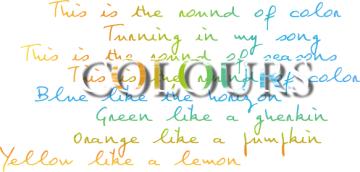 This is the round of color
Turning in my song
This is the round of seasons
This is the round of color
COLOURS
Blue like the horizon
Green like a gherkin
Orange like a pumpkin
Yellow like a lemon